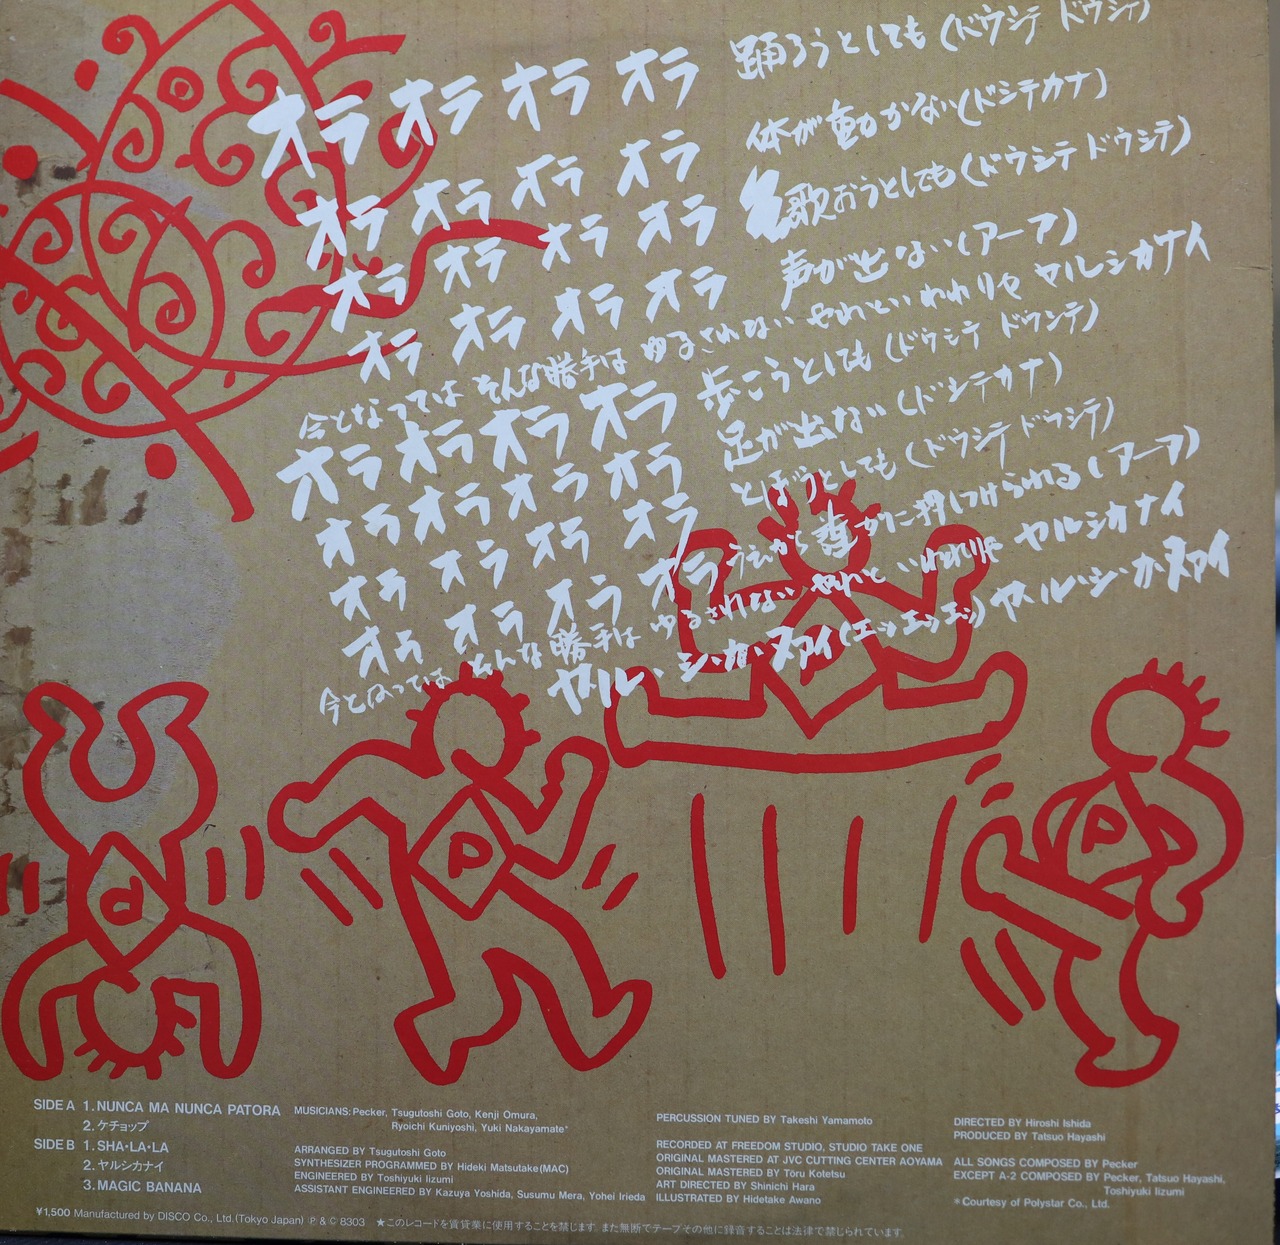 オラ オラ オラ オラ 踊ろうとしても (ドウシテ ドウシテ)
オラ オラ オラ オラ 体が動かない (ドシテカナ)
オラ オラ オラ オラ 歌おうとしても (ドウシテ ドウシテ)
オラ オラ オラ オラ 声が出ない (アーア)
今となっては そんな勝手は ゆるされない やれといわれりゃ ヤルシカナイ
オラ オラ オラ オラ 歩こうとしても (ドウシテ ドウシテ)
オラ オラ オラ オラ 足が出ない (ドシテカナ)
オラ オラ オラ オラ とぼうとしても (ドウシテ ドウシテ)
オラ オラ オラ オラ うえから誰かに押しつけられる (アーア)
今となっては そんな勝手は ゆるされない やれと いわれりゃ ヤルシカナイ
ヤ・ル・シ・カ・ヌァイ (エッエッエッ) ヤ・ル・シ・カ・ヌァイ
P
P
P
P
SIDE A 1. NUNCA MA NUNCA PATORA
2. ケチョップ
SIDE B 1. SHA・LA・LA
2. ヤルシカナイ
3. MAGIC BANANA
MUSICIANS: Pecker, Tsugutoshi Goto, Kenji Omura,
Ryoichi Kuniyoshi, Yuki Nakayamate*
ARRANGED BY Tsugutoshi Goto
SYNTHESIZER PROGRAMMED BY Hideki Matsutake(MAC)
ENGINEERED BY Toshiyuki Iizumi
ASSISTANT ENGINEERED BY Kazuya Yoshida, Susumu Mera, Yohei Irieda
PERCUSSION TUNED BY Takeshi Yamamoto
RECORDED AT FREEDOM STUDIO, STUDIO TAKE ONE
ORIGINAL MASTERED AT JVC CUTTING CENTER AOYAMA
ORIGINAL MASTERED BY Toru Kotetsu
ART DIRECTED BY Shinichi Hara
ILLUSTRATED BY Hidetake Awano
DIRECTED BY Hiroshi Ishida
PRODUCED BY Tatsuo Hayashi
ALL SONGS COMPOSED BY Pecker
EXCEPT A-2 COMPOSED BY Pecker, Tatsuo Hayashi,
Toshiyuki Iizumi
*Courtesy of Polystar Co., Ltd.
¥1,500 Manufactured by DISCO Co., Ltd. (Tokyo Japan) Ⓟ & © 8303 ★このレコードを賃貸業に使用することを禁じます。また無断でテープその他に録音することは法律で禁じられています。